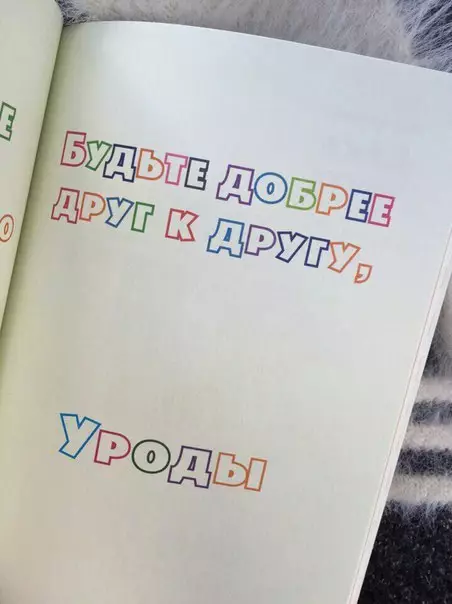 Е
О
Будьте добрее
друг к другу,
Уроды